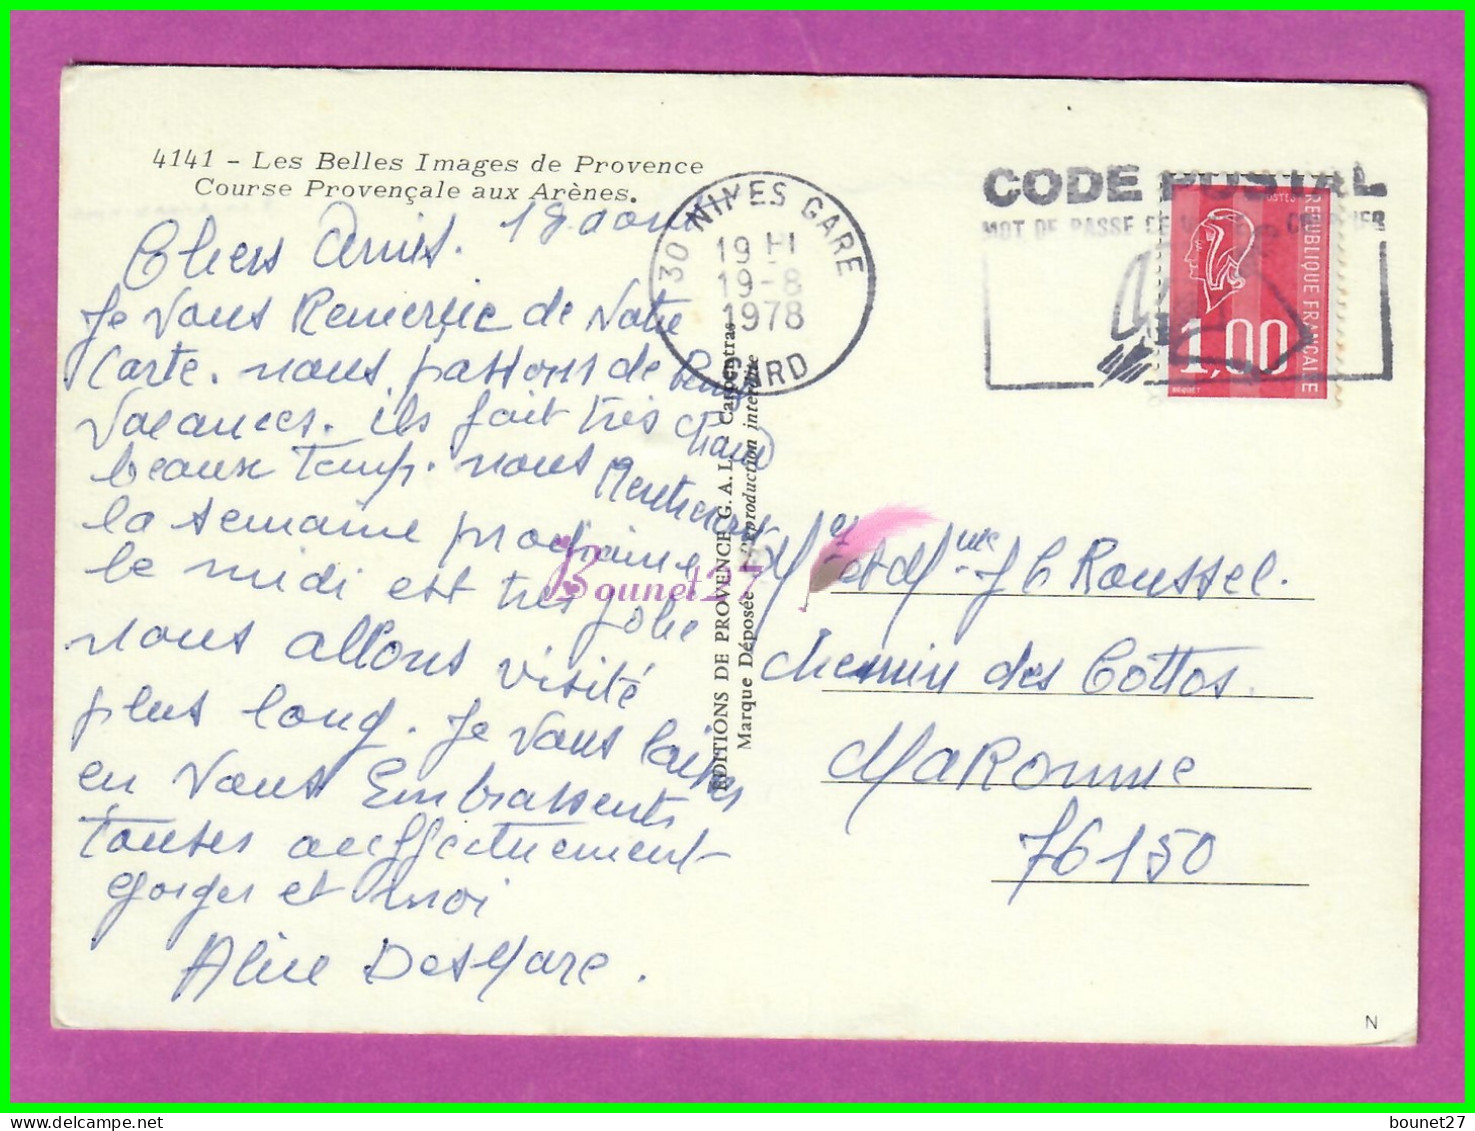 4141 - Les Belles Images de Provence
Course Provençale aux Arènes.
18 aout
Chers Amis.
Je vous Remercie de Notre
Carte. nous passons de
vacances. ils fait très chaud
beaux Temp. nous
la semaine prochaine
le midi est très jolie
nous allons visité
plus long. Je vous laisses
en vous Embrassents
Toutes aeffectuement
et moi
Aline DesMare.
EDITIONS DE PROVENCE G.A.L. Carpentras
Marque Déposée Reproduction interdite
30 NIMES GARE
19 H
19-8
1978
GARD
CODE POSTAL
MOT DE PASSE DE COURRIER
POSTES
REPUBLIQUE FRANCAISE
1,00
BEQUET
Mr et Mme J C Roussel.
chemin des Cottos.
MaRomme
76150
N
Bounet27
bounet27